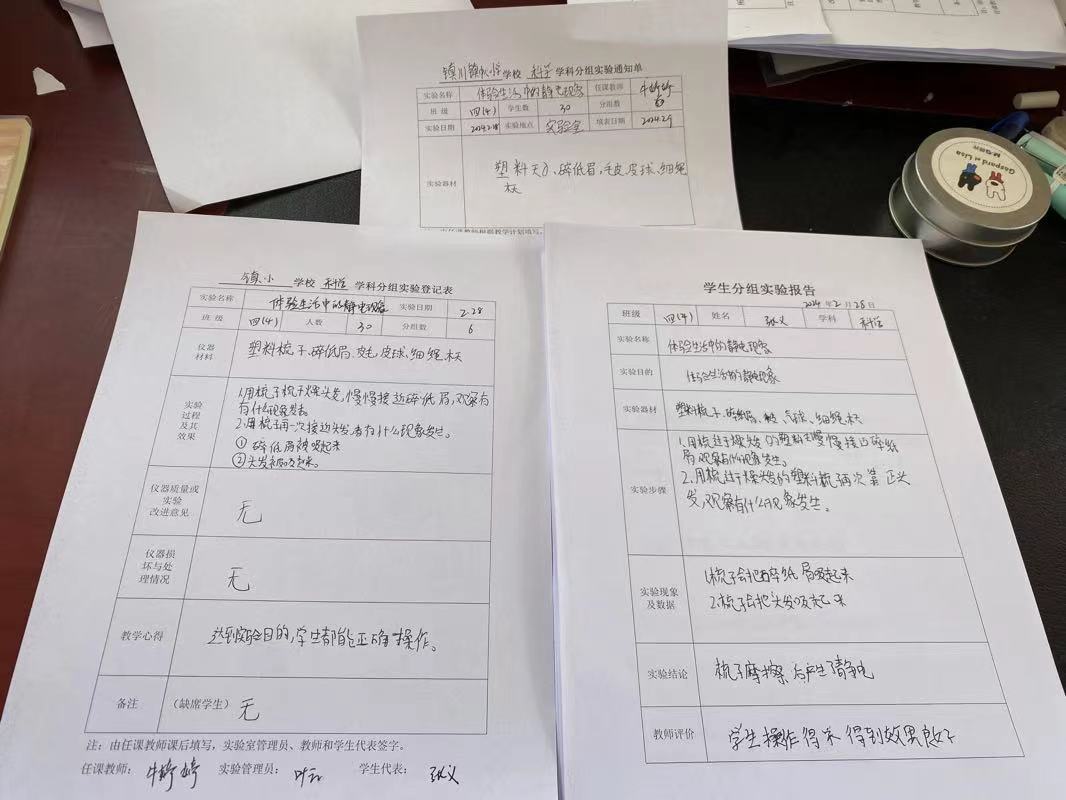 镇川镇中心小学学校 科学 学科分组实验通知单
实验名称 体验生活中的静电现象 任课教师 牛婷婷
班 级 四(4) 学生数 30 分组数
实验日期 实验地点 实验室 填表日期 2024.2.9
实验器材
塑料 碎低屑,毛皮,皮球,细绳
镇小 学校 科学 学科分组实验登记表
实验名称 体验生活中的静电现象 实验日期 2.28
班 级 四(4) 人数 30 分组数 6
仪器
材料
塑料梳子、碎低屑、皮球、细绳
实验
过程
及其
效果
1.用梳子梳干燥头发,慢慢接近碎低屑,观察有
有什么现象发生。
2.用梳子再一次接近头发,看有什么现象发生。
① 碎低屑被吸起来
②头发被吸起来。
仪器质量或
实验
改进意见
无
仪器损
坏与处
理情况
无
教学心得 达到实验目的,学生都能正确操作。
备注 (缺席学生) 无
注:由任课教师课后填写,实验室管理员、教师和学生代表签字。
任课教师: 牛婷婷 实验管理员: 叶 学生代表: 张义
学生分组实验报告
2024 年 2 月 28 日
班级 四(4) 姓名 张义 学科 科学
实验名称 体验生活中的静电现象
实验目的 体验生活的静电现象
实验器材 塑料梳子、碎纸屑、气球、细绳
实验步骤
1.用梳过干燥头发的塑料梳慢慢接近碎纸
屑,观察有什么现象发生。
2.用梳过干燥头发的塑料梳再次靠近头
发,观察有什么现象发生。
实验现象
及数据
1.梳子会把碎纸屑吸起来
2.梳子会把头发吸起来
实验结论 梳子摩擦后产生了静电
教师评价 学生操作得不得到效果良好
Gaspard et Lisa